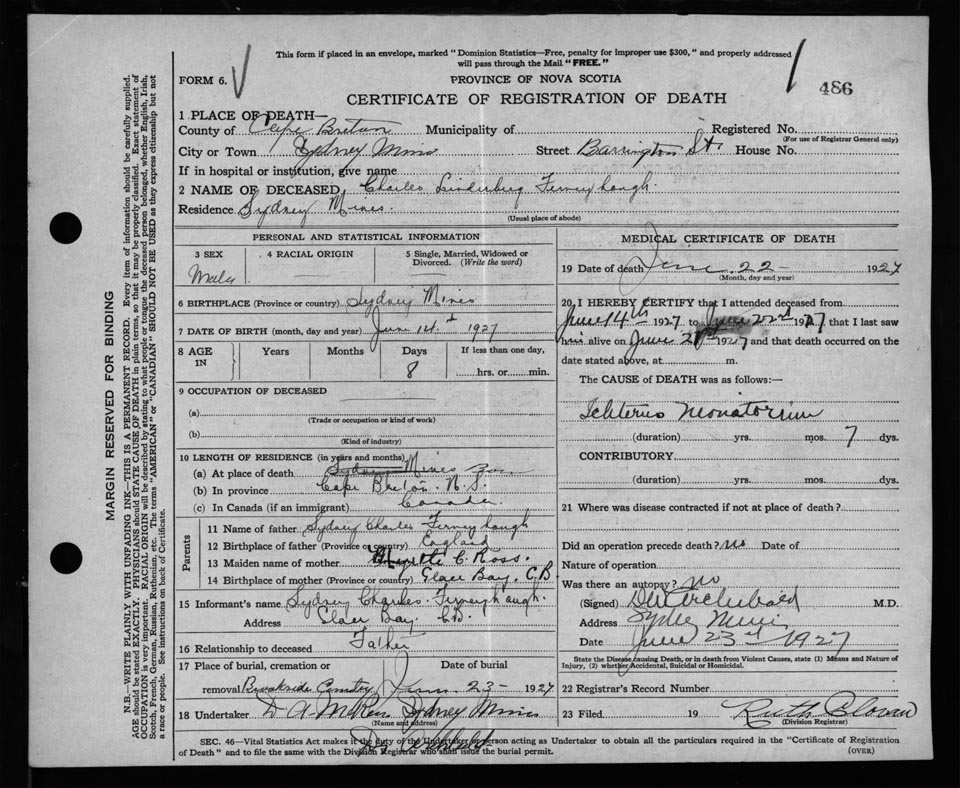 This form if placed in an envelope, marked "Dominion Statistics—Free, penalty for improper use $300," and properly addressed
will pass through the Mail "FREE."
FORM 6.
PROVINCE OF NOVA SCOTIA
486
CERTIFICATE OF REGISTRATION OF DEATH
1 PLACE OF DEATH—
County of Cape Breton Municipality of Registered No.
(For use of Registrar General only)
City or Town Sydney Mines Street Barrington St. House No.
If in hospital or institution, give name
2 NAME OF DECEASED, Charles Linderberg Ferneyhaugh.
Residence Sydney Mines.
(Usual place of abode)
PERSONAL AND STATISTICAL INFORMATION
3 SEX 4 RACIAL ORIGIN 5 Single, Married, Widowed or
Divorced. (Write the word)
Male
6 BIRTHPLACE (Province or country) Sydney Mines
7 DATE OF BIRTH (month, day and year) June 14. 1927
8 AGE IN Years Months Days If less than one day,
8 hrs. or min.
9 OCCUPATION OF DECEASED
(a)
(Trade or occupation or kind of work)
(b)
(Kind of industry)
10 LENGTH OF RESIDENCE (in years and months)
(a) At place of death Sydney Mines
(b) In province Cape Breton. N.S.
(c) In Canada (if an immigrant) Canada.
Parents
11 Name of father Sydney Charles Ferneyhaugh
12 Birthplace of father (Province or country) England
13 Maiden name of mother C. Ross.
14 Birthplace of mother (Province or country) Glace Bay. C.B.
15 Informant's name Sydney Charles. Ferneyhaugh.
Address Glace Bay. C.B.
16 Relationship to deceased Father
17 Place of burial, cremation or Date of burial
removal Brookside Cemetry June 23- 1927
18 Undertaker D A McRae Sydney Mines
(Name and address)
MEDICAL CERTIFICATE OF DEATH
19 Date of death June 22- 1927
(Month, day and year)
20 I HEREBY CERTIFY that I attended deceased from
June 14th 1927 to June 22nd 1927 that I last saw
him alive on June 21st 1927 and that death occurred on the
date stated above, at m.
The CAUSE OF DEATH was as follows:—
Ichterus Neonatorium
(duration) yrs. mos. 7 dys.
CONTRIBUTORY
(duration) yrs. mos. dys.
21 Where was disease contracted if not at place of death?
Did an operation precede death? no Date of
Nature of operation
Was there an autopsy? no
(Signed) Archibald M.D.
Address Sydney Mines
Date June 23rd 1927
State the Disease causing Death, or in death from Violent Causes, state (1) Means and Nature of
Injury, (2) whether Accidental, Suicidal or Homicidal.
22 Registrar's Record Number
23 Filed 19 Ruth
(Division Registrar)
SEC. 46—Vital Statistics Act makes it the duty of the Undertaker or person acting as Undertaker to obtain all the particulars required in the "Certificate of Registration
of Death" and to file the same with the Division Registrar who shall issue the burial permit.
(OVER)
MARGIN RESERVED FOR BINDING
N.B.—WRITE PLAINLY WITH UNFADING INK—THIS IS A PERMANENT RECORD. Every item of information should be carefully supplied.
AGE should be stated EXACTLY. PHYSICIANS should STATE CAUSE OF DEATH in plain terms, so that it may be properly classified. Exact statement of
OCCUPATION is very important. RACIAL ORIGIN will be described by stating to what people or tongue the deceased person belonged, whether English, Irish,
Scotch, French, German, Russian, Ruthenian, etc. The terms "AMERICAN" or "CANADIAN" SHOULD NOT BE USED as they express citizenship but not
a race or people. See instructions on back of Certificate.